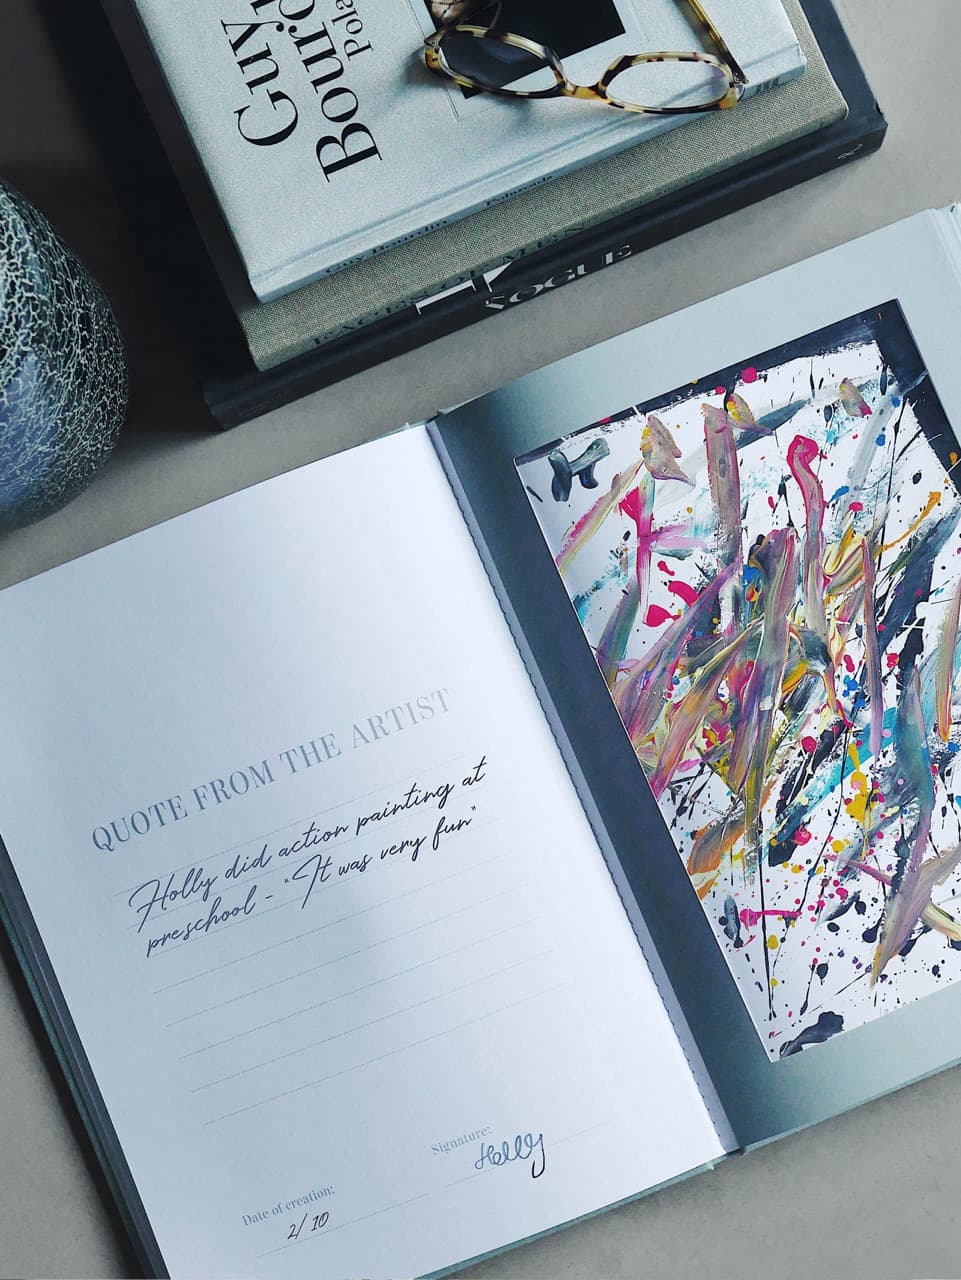 Guy
Bourdin
Pola
Guy Bourdin Polaroids
FACES OF MEN
VOGUE
QUOTE FROM THE ARTIST
Holly did action painting at
preschool - "It was very fun"
Signature:
Holly
Date of creation:
2/10